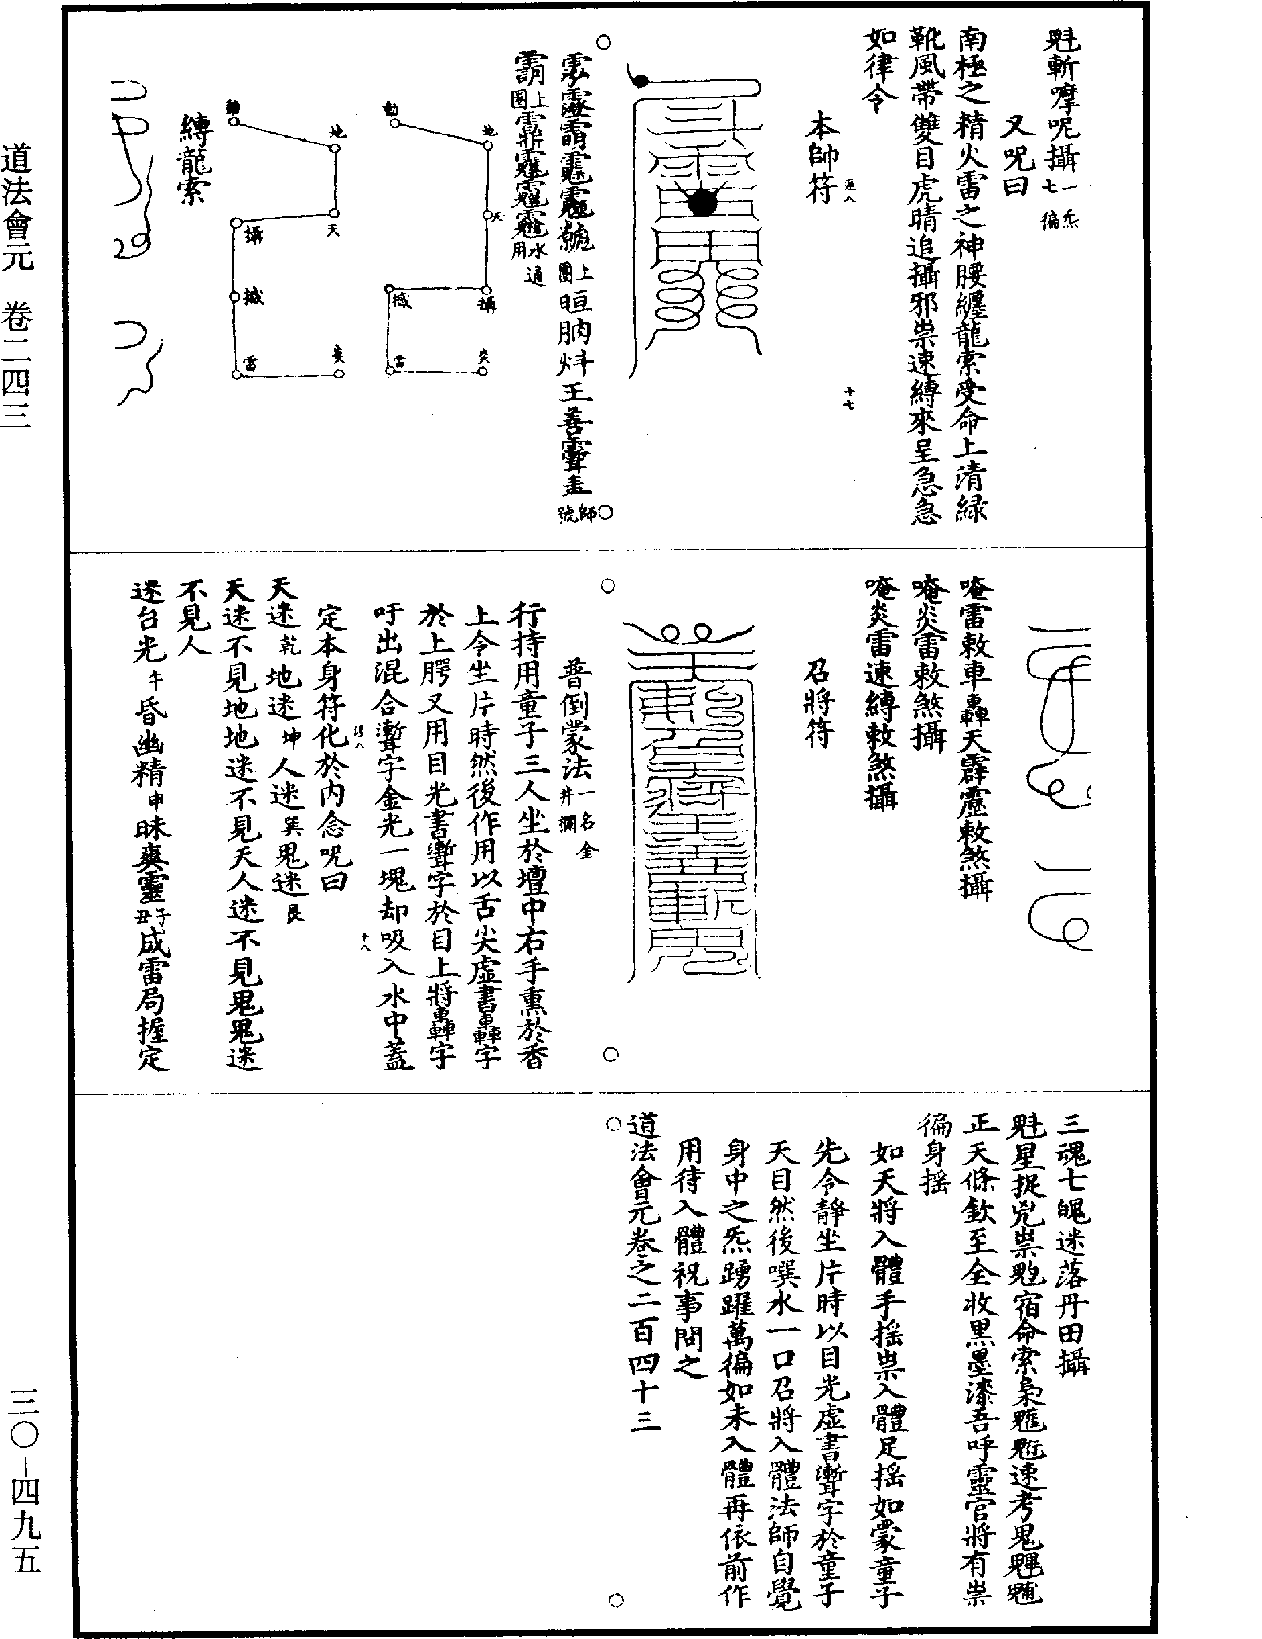 魁斬嚤呪攝一炁七徧
又呪曰
南極之精火雷之神腰纏龍索受命上清緑
靴風帶雙目虎睛追攝邪祟速縛來呈急急
如律令
本帥符
十七
上圖
王善
師號
上圖
水通用
動 地 天 攝 撼 雷 炎
動 地 天 攝 撼 雷 炎
縛龍索
唵雷敕車轟天霹靂敕煞攝
唵炎雷敕煞攝
唵炎雷速縛敕煞攝
召將符
普倒蒙法一名金井欄
行持用童子三人坐於壇中右手熏於香
上令坐片時然後作用以舌尖虛書轟字
於上腭又用目光書聻字於目上將轟字
吁出混合聻字金光一塊却吸入水中蓋
定本身符化於内念呪曰
十八
天迷乾地迷坤人迷巽鬼迷艮
天迷不見地地迷不見天人迷不見鬼鬼迷
不見人
迷台光午昏幽精申昧爽靈子丑成雷局握定
三魂七魄迷落丹田攝
魁星捉兇祟 宿命索梟 速考鬼
正天條欽至全收黑墨漆吾呼靈官將有祟
徧身揺
如天將入體手揺祟入體足揺如蒙童子
先令靜坐片時以目光虛書聻字於童子
天目然後噀水一口召將入體法師自覺
身中之炁踴躍萬徧如未入體再依前作
用待入體祝事問之
道法會元卷之二百四十三
道法會元 卷二四三
三〇—四九五